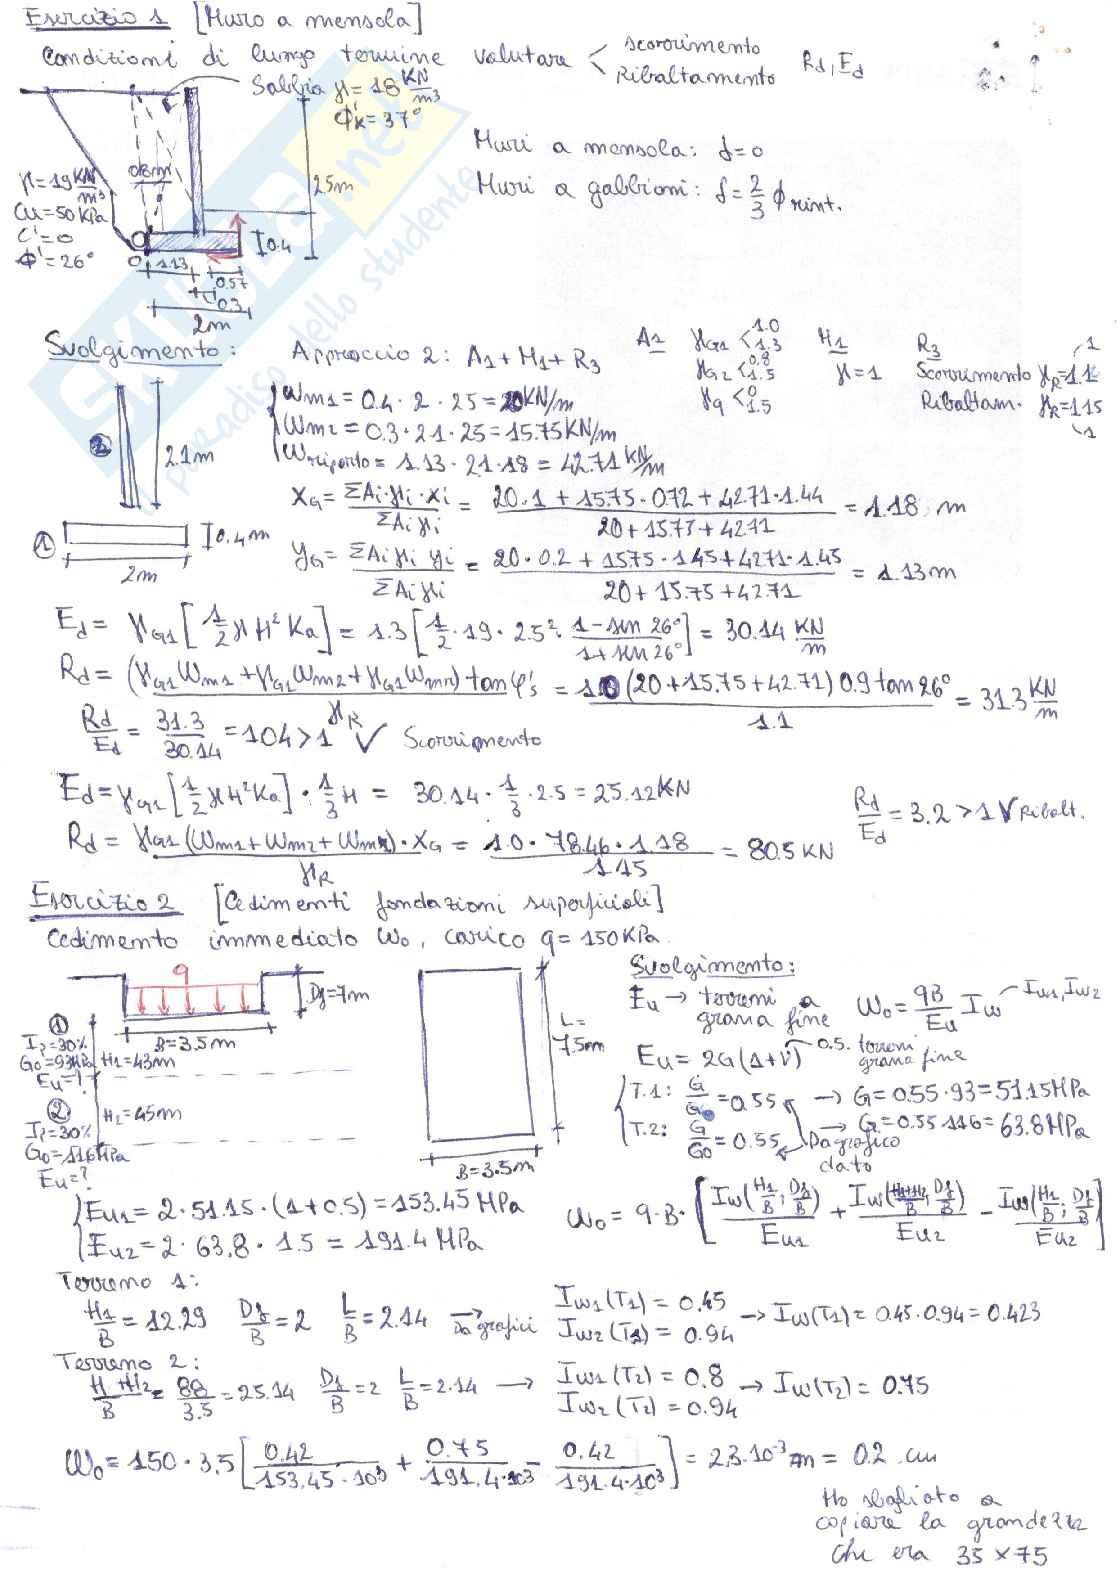 Esercizio 1 [Muro a mensola]
Condizioni di lungo termine valutare < scorrimento Ribaltamento Rd, Ed
Sabbia γ = 18 KN/m³
ϕ'k = 37°
Muri a mensola: δ=0
Muri a gabbioni: δ = 2/3 ϕ rint.
0.8m
2.5m
γ=19 KN/m³
Cu=50 KPa
C'=0
ϕ'=26°
O 1.13 0.57 0.4
0.3
2m
Svolgimento: Approccio 2: A1 + M1 + R3
A1 γG1 < 1.0 1.3
γG2 < 0.8 1.5
γq < 0 1.5
M1
γ=1
R3
Scorrimento γR=1.1
Ribaltam. γR=1.15
1
1
2 2.1m
1 0.4m
2m
Wm1 = 0.4 · 2 · 25 = 20 KN/m
Wm2 = 0.3 · 2.1 · 25 = 15.75 KN/m
Wriporto = 1.13 · 2.1 · 18 = 42.71 KN/m
XG = ΣAi·γi·xi / ΣAiγi = 20·1 + 15.75·0.72 + 42.71·1.44 / 20+15.75+42.71 = 1.18 m
yG = ΣAiγi yi / ΣAiγi = 20·0.2 + 15.75·1.45 + 42.71·1.45 / 20+15.75+42.71 = 1.13m
Ed = γG1 [1/2 γ H² Ka] = 1.3 [1/2 · 19 · 2.5² · 1-sen 26° / 1+sen 26°] = 30.14 KN/m
Rd = (γG1Wm1 + γG1Wm2 + γG1Wmr) tan φ's / γR = 1.0 (20+15.75+42.71) 0.9 tan 26° / 1.1 = 31.3 KN/m
Rd/Ed = 31.3/30.14 = 1.04 > 1 √ Scorrimento
Ed = γG1 [1/2 γH²Ka] · 1/3 H = 30.14 · 1/3 · 2.5 = 25.12 KN
Rd/Ed = 3.2 > 1 √ Ribalt.
Rd = γG1 (Wm1+Wm2+Wmr) · XG / γR = 1.0 · 78.46 · 1.18 / 1.15 = 80.5 KN
Esercizio 2 [Cedimenti fondazioni superficiali]
Cedimento immediato W0, carico q=150 KPa.
q
Df=7m
B=3.5m
1
Ip=30%
G0=93MPa H1=43m
Eu=?
2
H2=45m
Ip=30%
G0=116MPa
Eu=?
L=
7.5m
B=3.5m
Svolgimento:
Eu → terreni a grana fine W0 = qB/Eu Iw Iw1, Iw2
Eu = 2G(1+ν) 0.5. terreni grana fine
T.1: G/G0 = 0.55 → G=0.55·93=51.15MPa
T.2: G/G0 = 0.55 → G=0.55·116=63.8MPa
Da grafico
dato
Eu1 = 2·51.15·(1+0.5) = 153.45 MPa
Eu2 = 2·63.8·1.5 = 191.4 MPa
W0 = q·B·[Iw(H1/B; Df/B) / Eu1 + Iw(H1+H2/B; Df/B) / Eu2 - Iw(H1/B; Df/B) / Eu2]
Terreno 1:
H1/B = 12.29 Df/B = 2 L/B = 2.14 → Da grafici Iw1(T1) = 0.45 Iw2(T1) = 0.94 → Iw(T1) = 0.45·0.94 = 0.423
Terreno 2:
H+H2/B = 88/3.5 = 25.14 Df/B = 2 L/B = 2.14 → Iw1(T2) = 0.8 Iw2(T2) = 0.94 → Iw(T2) = 0.75
W0 = 150·3.5 [0.42 / 153.45·10³ + 0.75 / 191.4·10³ - 0.42 / 191.4·10³] = 2.3·10⁻³ m = 0.2 cm
Ho sbagliato a
copiare la grandezza
che era 35 x 75